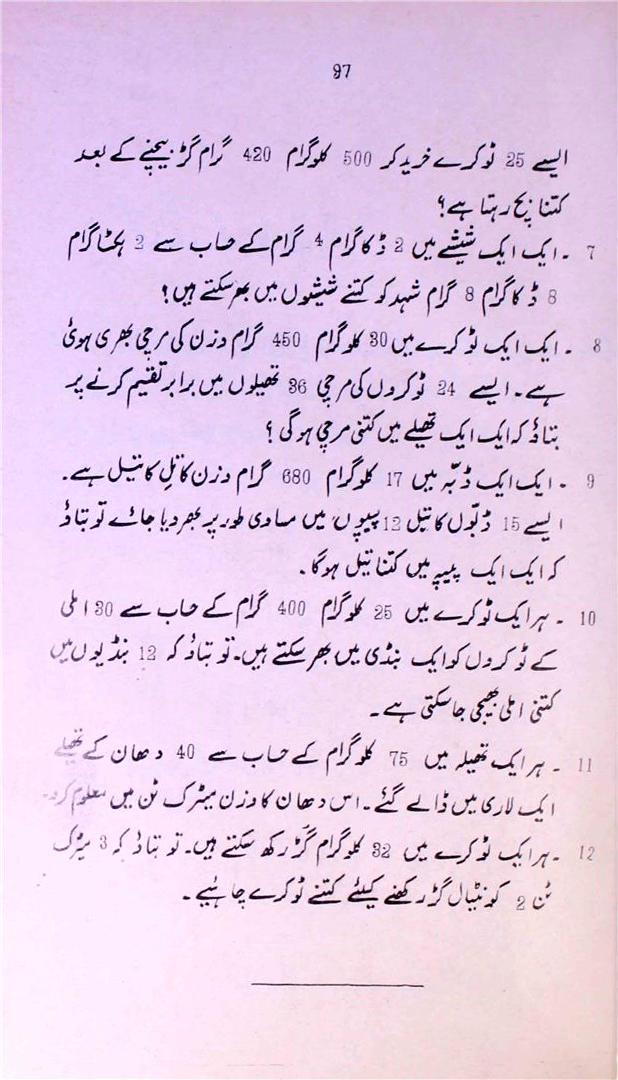 97
ایسے 25 ٹوکرے خرید کر 500 کلوگرام 420 گرام گڑ بیچنے کے بعد
کتنا بچ رہتا ہے؟
7 ۔ ایک ایک شیشے میں 2 ڈکاگرام 4 گرام کے حساب سے 2 ہکٹاگرام
8 ڈکاگرام 8 گرام شہد کو کتنے شیشوں میں بھر سکتے ہیں؟
8 ۔ ایک ایک ٹوکرے میں 30 کلوگرام 450 گرام وزن کی مرچی بھری ہوئی
ہے۔ ایسے 24 ٹوکروں کی مرچی 36 تھیلوں میں برابر تقیم کرنے پر
بتاؤ کہ ایک ایک تھیلے میں کتنی مرچی ہوگی؟
9 ۔ ایک ایک ڈبّہ میں 17 کلوگرام 680 گرام وزن کا تِل کا تیل ہے۔
ایسے 15 ڈبّوں کا تیل 12 پیپوں میں مساوی طور پر بھر دیا جائے تو بتاؤ
کہ ایک ایک پیپے میں کتنا تیل ہوگا۔
10 ۔ ہر ایک ٹوکرے میں 25 کلوگرام 400 گرام کے حساب سے 30 املی
کے ٹوکروں کو ایک بنڈی میں بھر سکتے ہیں۔ تو بتاؤ کہ 12 بنڈیوں میں
کتنی املی بھیجی جاسکتی ہے۔
11 ۔ ہر ایک تھیلہ میں 75 کلوگرام کے حساب سے 40 دھان کے تھیلے
ایک لاری میں ڈالے گئے۔ اس دھان کا وزن میٹرک ٹن میں معلوم کرو۔
12 ۔ ہر ایک ٹوکرے میں 32 کلوگرام گڑ رکھ سکتے ہیں۔ تو بتاؤ کہ 3 میٹرک
ٹن 2 کونٹیال گڑ رکھنے کیلئے کتنے ٹوکرے چاہیے۔